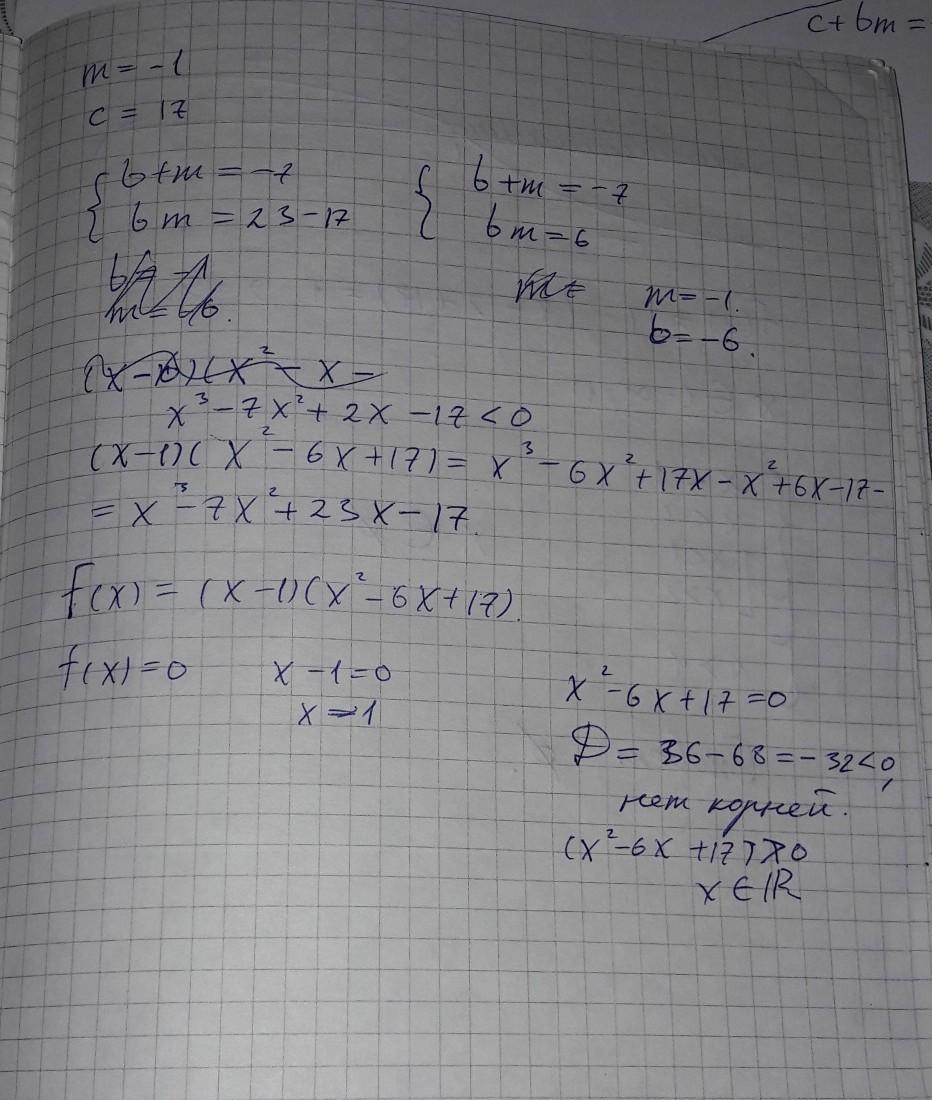 c + bm =
m = -1
c = 17
{ b+m = -7
bm = 23-17
{ b+m = -7
bm = 6
m =
m = -1.
b = -6.
x³ - 7x² + 2x - 17 < 0
(x-1)(x² - 6x + 17) = x³ - 6x² + 17x - x² + 6x - 17 -
= x³ - 7x² + 23x - 17.
f(x) = (x-1)(x² - 6x + 17).
f(x) = 0
x - 1 = 0
x = 1
x² - 6x + 17 = 0
D = 36 - 68 = -32 < 0,
нет корней.
(x² - 6x + 17) > 0
x ∈ ℝ